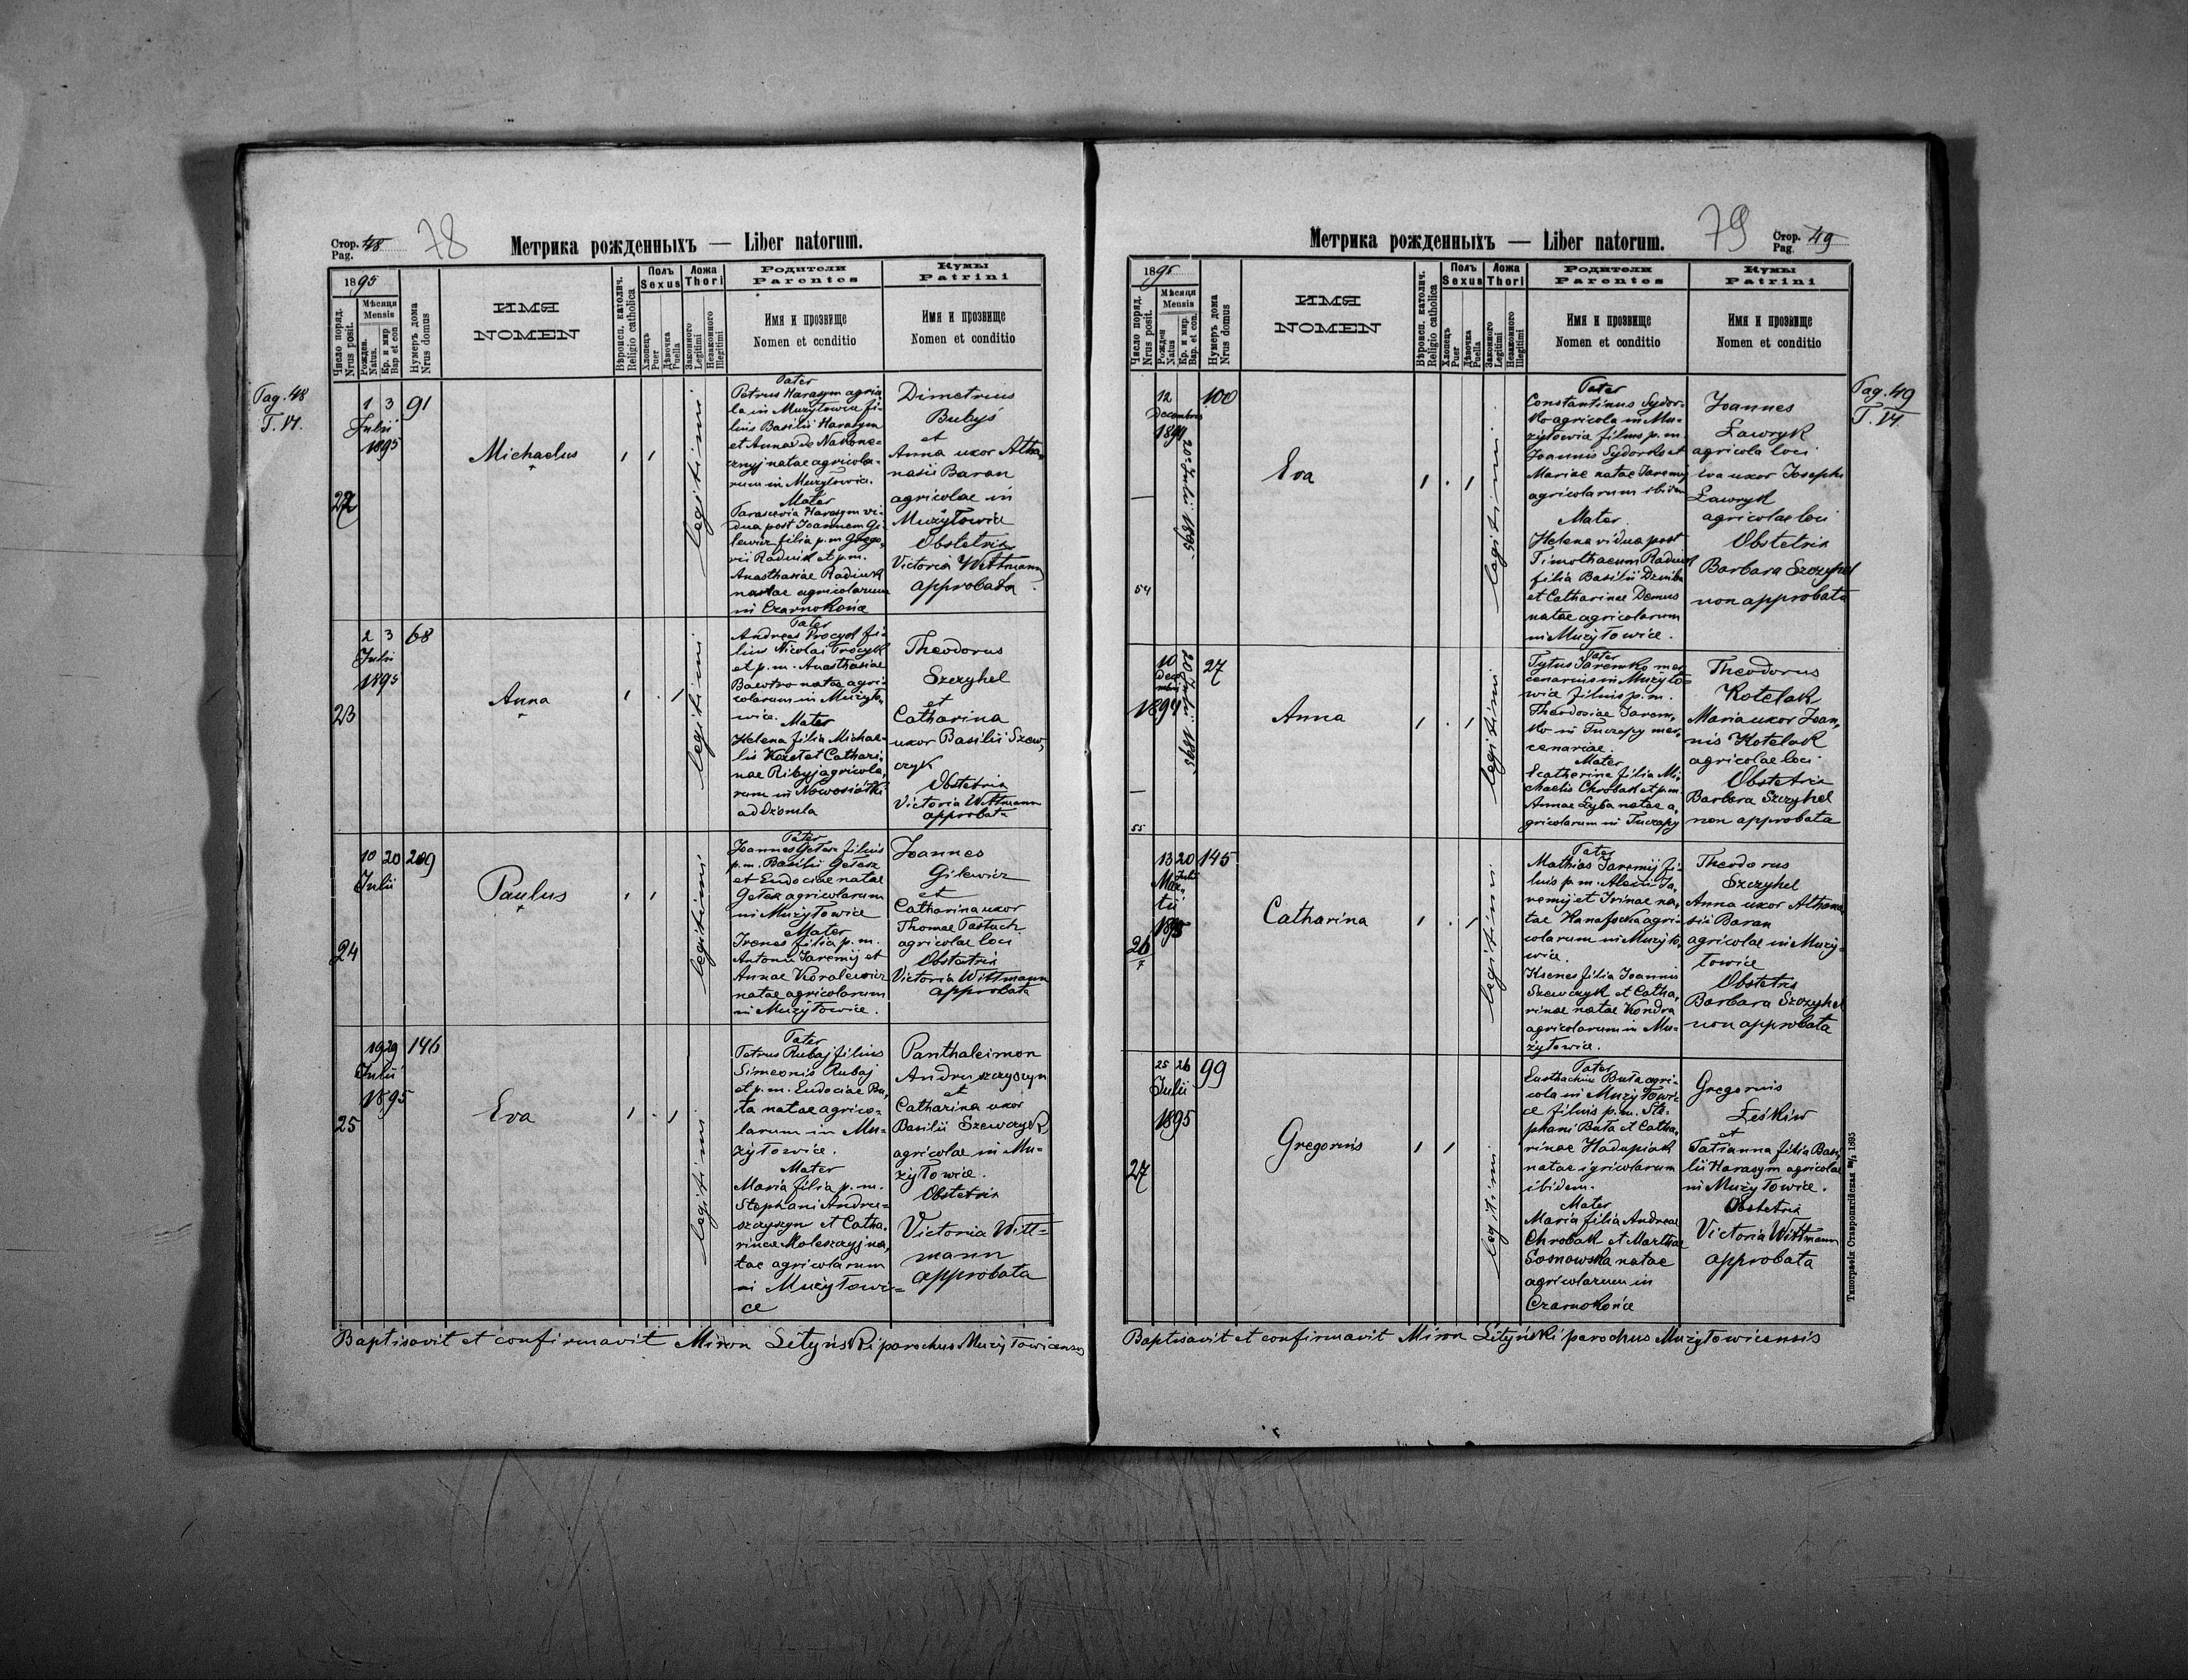 Стор. 48
Pag.
78
Метрика рожденныхъ — Liber natorum.
1895
Число поряд.
Nrus posit.
Мѣсяця
Mensis
Рожден.
Natus.
Кр. и мир
Bap et con
Нумеръ дома
Nrus domus
ИМЯ
NOMEN
Вѣроисп. католич.
Religio catholica
Полъ
Sexus
Хлопецъ
Puer
Дѣвочка
Puella
Ложа
Thori
Законного
Legitimi
Незаконного
Illegitimi
Родители
Parentes
Имя и прозвище
Nomen et conditio
Кумы
Patrini
Имя и прозвище
Nomen et conditio
Pag. 48
T. VI.
22
1 3
Julii
1895
91
Michaelus
legitimi
Pater
Petrus Harasym agrico
la in Mużyłowice fi-
lius Basilii Harasym
et Annae de Nakone-
cznyj natae agricola-
rum in Mużyłowice.
Mater
Parascevia Harasym vi-
dua post Joannem Gi-
lewicz filia p.m. Grego-
rii Radiuk et p.m.
Anasthasiae Radiuk
natae agricolarum
in Czarnokońce
Dimetrius
Butyś
et
Anna uxor Atha-
nasii Baran
agricolae in
Mużyłowice
Obstetrix
Victoria Wittmann
approbata
23
2 3
Julii
1895
68
Anna
legitimi
Pater
Andreas Procyk fi-
lius Nicolai Procyk
et p.m. Anasthasiae
natae agri-
colarum in Mużyło-
wice. Mater
Helena filia Michae-
lis et Cathari-
nae Ribyj agricola-
rum in Nowosiółki
ad
Theodorus
Szczyhel
et
Catharina
uxor Basilii Szew-
czyk
Obstetrix
Victoria Wittmann
approbata
24
10 20
Julii
209
Paulus
legitimi
Pater
Joannes Getesz filius
p.m. Basilii Getesz
et Eudociae natae
agricolarum
in Mużyłowice
Mater
Irenes filia p.m.
Antonii Jaremij et
Annae Koralewicz
natae agricolarum
in Mużyłowice.
Joannes
Gilewicz
et
Catharina uxor
Thomae Pastuch
agricolae loci
Obstetrix
Victoria Wittmann
approbata
25
19 29
Julii
1895
146
Eva
legitimi
Pater
Petrus Rubaj filius
Simeonis Rubaj
et p.m. Eudociae Bu-
ta natae agrico-
larum in Mu-
żyłowice.
Mater
Maria filia p.m.
Stephani Andru-
szczyszyn et Catha-
rinae Moleszczyj na-
tae agricolarum
in Mużyłowi-
ce
Panthaleimon
Andruszczyszyn
et
Catharina uxor
Basilii Szewczyk
agricolae in Mu-
żyłowice.
Obstetrix
Victoria Witt-
mann
approbata
Baptisavit et confirmavit Miron Lityński parochus Mużyłowicensis
Метрика рожденныхъ — Liber natorum.
79
Стор. 49
Pag.
1895
Число поряд.
Nrus posit.
Мѣсяця
Mensis
Рожден
Natus
Кр. и мир.
Bap. et con.
Нумеръ дома
Nrus domus
ИМЯ
NOMEN
Вѣроисп. католич.
Religio catholica
Полъ
Sexus
Хлопецъ
Puer
Дѣвочка
Puella
Ложа
Thori
Законного
Legitimi
Незаконного
Illegitimi
Родители
Parentes
Имя и прозвище
Nomen et conditio
Кумы
Patrini
Имя и прозвище
Nomen et conditio
Pag. 49
T. VI
54
12
Decembris
1894
20 Julii 1895
100
Eva
legitimi
Pater
Constantinus Sydor-
ko agricola in Mu-
żyłowice filius p.m.
Joannis Sydorko et
Mariae natae Jaremij
agricolarum ibidem
Mater
Helena vidua post
Timothaeum Radiuk
filia Basilii Dziuba
et Catharinae Demus
natae agricolarum
in Mużyłowice.
Joannes
Ławryk
agricola loci
Eva uxor Josephi
Ławryk
agricolae loci
Obstetrix
Barbara Szczyhel
non approbata
55
10
Decembris
1894
20 Julii 1895
27
Anna
legitimi
Pater
Tytus Jaremko mer-
cenarius in Mużyło-
wice filius p.m.
Theodosiae Jarem-
ko in Tuczapy mer-
cenariae.
Mater
Ecatherina filia Mi-
chaelis Chrobak et p.m.
Annae Zyba natae a-
gricolarum in Tuczapy
Theodorus
Kotelak
Maria uxor Joan-
nis Kotelak
agricolae loci
Obstetrix
Barbara Szczyhel
non approbata
26
13 20
Martii Julii
1895
145
Catharina
legitimi
Pater
Mathias Jaremij fi-
lius p.m. Alexii Ja-
remij et Irinae na-
tae agri-
colarum in Mużyło-
wice.
Ksenes filia Joannis
Szewczyk et Catha-
rinae natae Kondra
agricolarum in Mu-
żyłowice.
Theodorus
Szczyhel
Anna uxor Athana-
sii Baran
agricolae in Muży-
łowice
Obstetrix
Barbara Szczyhel
non approbata
27
25 26
Julii
1895
99
Gregorius
legitimi
Pater
Eusthachius Buta agri-
cola in Mużyłowi-
ce filius p.m. Ste-
phani Buta et Catha-
rinae Hadupiak
natae agricolarum
ibidem.
Mater
Maria filia Andreae
Chrobak et Marthae
Sosnowska natae
agricolarum in
Czarnokońce
Gregorius
Leśków
et
Tatianna filia Basi-
lii Harasym agricolae
in Mużyłowice.
Obstetrix
Victoria Wittmann
approbata
Типографія Ставропигійская 1895
Baptisavit et confirmavit Miron Lityński parochus Mużyłowicensis